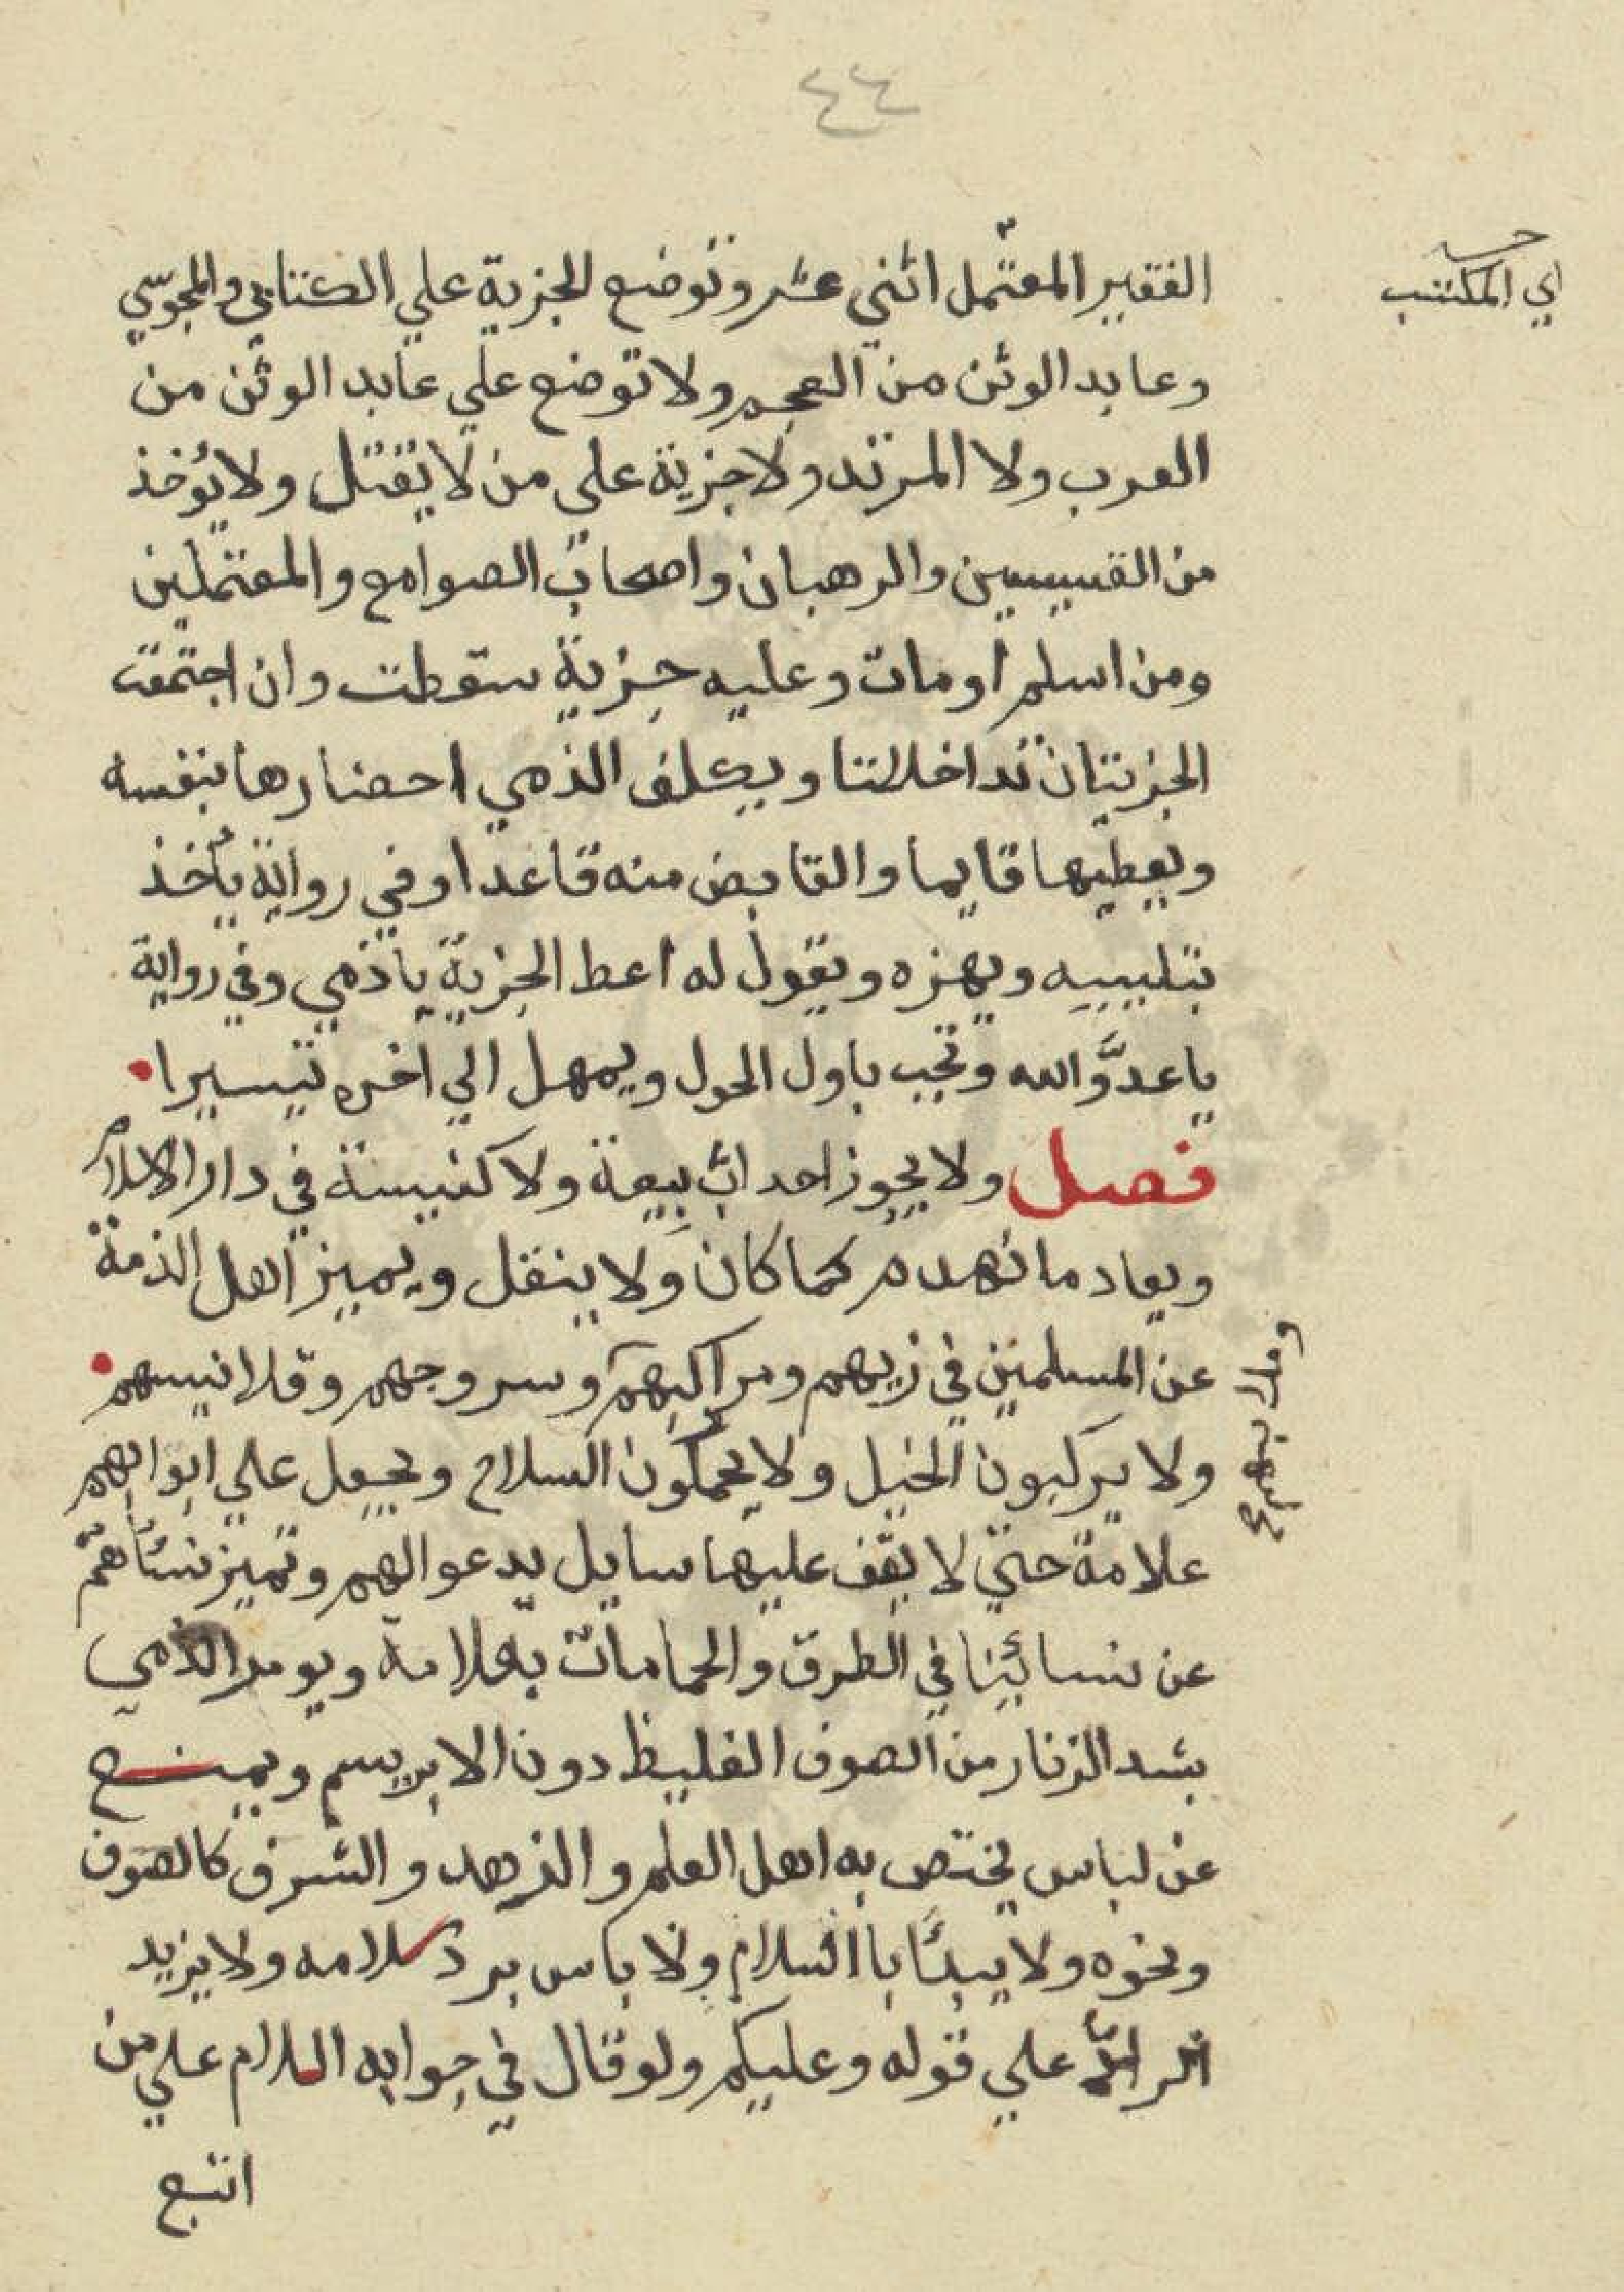 ٤٤
الفقير المعتمل اثني عشر وتوضع الجزية علي الكتابي والمجوسي
اي المكتسب
وعابد الوثن من العجم ولا توضع علي عابد الوثن من
العرب ولا المرتد ولا جزية على من لا يقتل ولا يؤخذ
من القسيسين والرهبان واصحاب الصوامع والمعتملين
ومن اسلم او مات وعليه جزية سقطت وان اجتمعت
الجزيتان تداخلتا ويكلف الذمي احضارها بنفسه
ويعطيها قايما والقابض منه قاعدا وفي رواية يأخذ
بتلبيبه ويهزه ويقول له اعط الجزية يا ذمي وفي رواية
يا عدوَّ الله وتجب باول الحول ويمهل الي اخره تيسيرا
فصل ولا يجوز احداث بيعة ولا كنيسة في دار الاسلام
ويعاد ما انهدم كما كان ولا ينقل ويميز اهل الذمة
عن المسلمين في زيهم ومراكبهم وسروجهم وقلانيسهم
ولا يركبون الخيل ولا يحملون السلاح ويجعل علي ابوابهم
علامة حتي لا يقف عليها سايل يدعوا لهم وتميز نساءهم
عن نسائينا في الطرق والحمامات بعلامة ويومر الذمي
بشد الزنار من الصوف الغليظ دون الابريسم ويمنع
عن لباس يختص به اهل العلم والزهد والشرف كالصوف
ونحوه ولا يبدئا باالسلام ولا باس برد سلامه ولا يزيد
الراد علي قوله وعليكم ولو قال في جوابه السلام علي من
اتبع